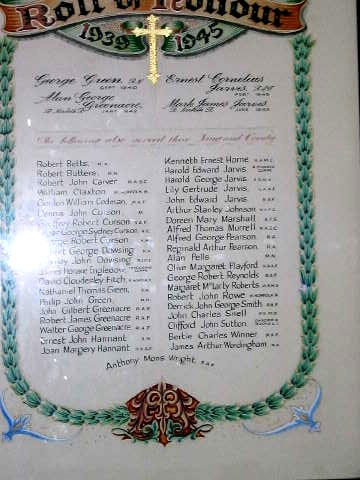 Roll of Honour
1939 1945
George Green. R.N.
SEPT 1940
Ernest Cornelius
Jarvis.
Alan George
Greenacre.
JAN? 1942
Mark James Jarvis
JUNE
The following also served their King and Country
Robert Betts. R.A.
Robert Buttera. R.N.
Robert John Carver R.A.S.C.
William Claxton
Gordon William Codman. R.A.F.
Donna John Curson
Geoffrey Robert Curson R.A.F.
George Sydney Curson. R.E.
George Robert Curson
Robert George Dowsing
Stanley John Dowsing
James Horace Ingledove
David Cloudesley Fitch.
Nathaniel Thomas Green.
Philip John Green.
John Gilbert Greenacre R.A.F.
Robert James Greenacre R.A.F.
Walter George Greenacre R.A.F.
Ernest John Hannant
Joan Margery Hannant
Kenneth Ernest Horne R.A.M.C.
Harold Edward Jarvis.
Harold George Jarvis.
Lily Gertrude Jarvis.
John Edward Jarvis. R.A.F.
Arthur Stanley Johnson
Doreen Mary Marshall A.T.S.
Alfred Thomas Murrell R.A.S.C.
Alfred George Pearson. R.A.
Reginald Arthur Pearson. R.A.
Alan Pells
Olive Margaret Playford
George Robert Reynolds R.A.F.
Margaret McLarty Roberts
Robert John Rowe
Derrick John George Smith R.A.F.
John Charles Snell
Clifford John Sutton.
Bertie Charles Winner R.A.F.
James Arthur Wordingham R.A.
Anthony Mons Wright. R.A.F.